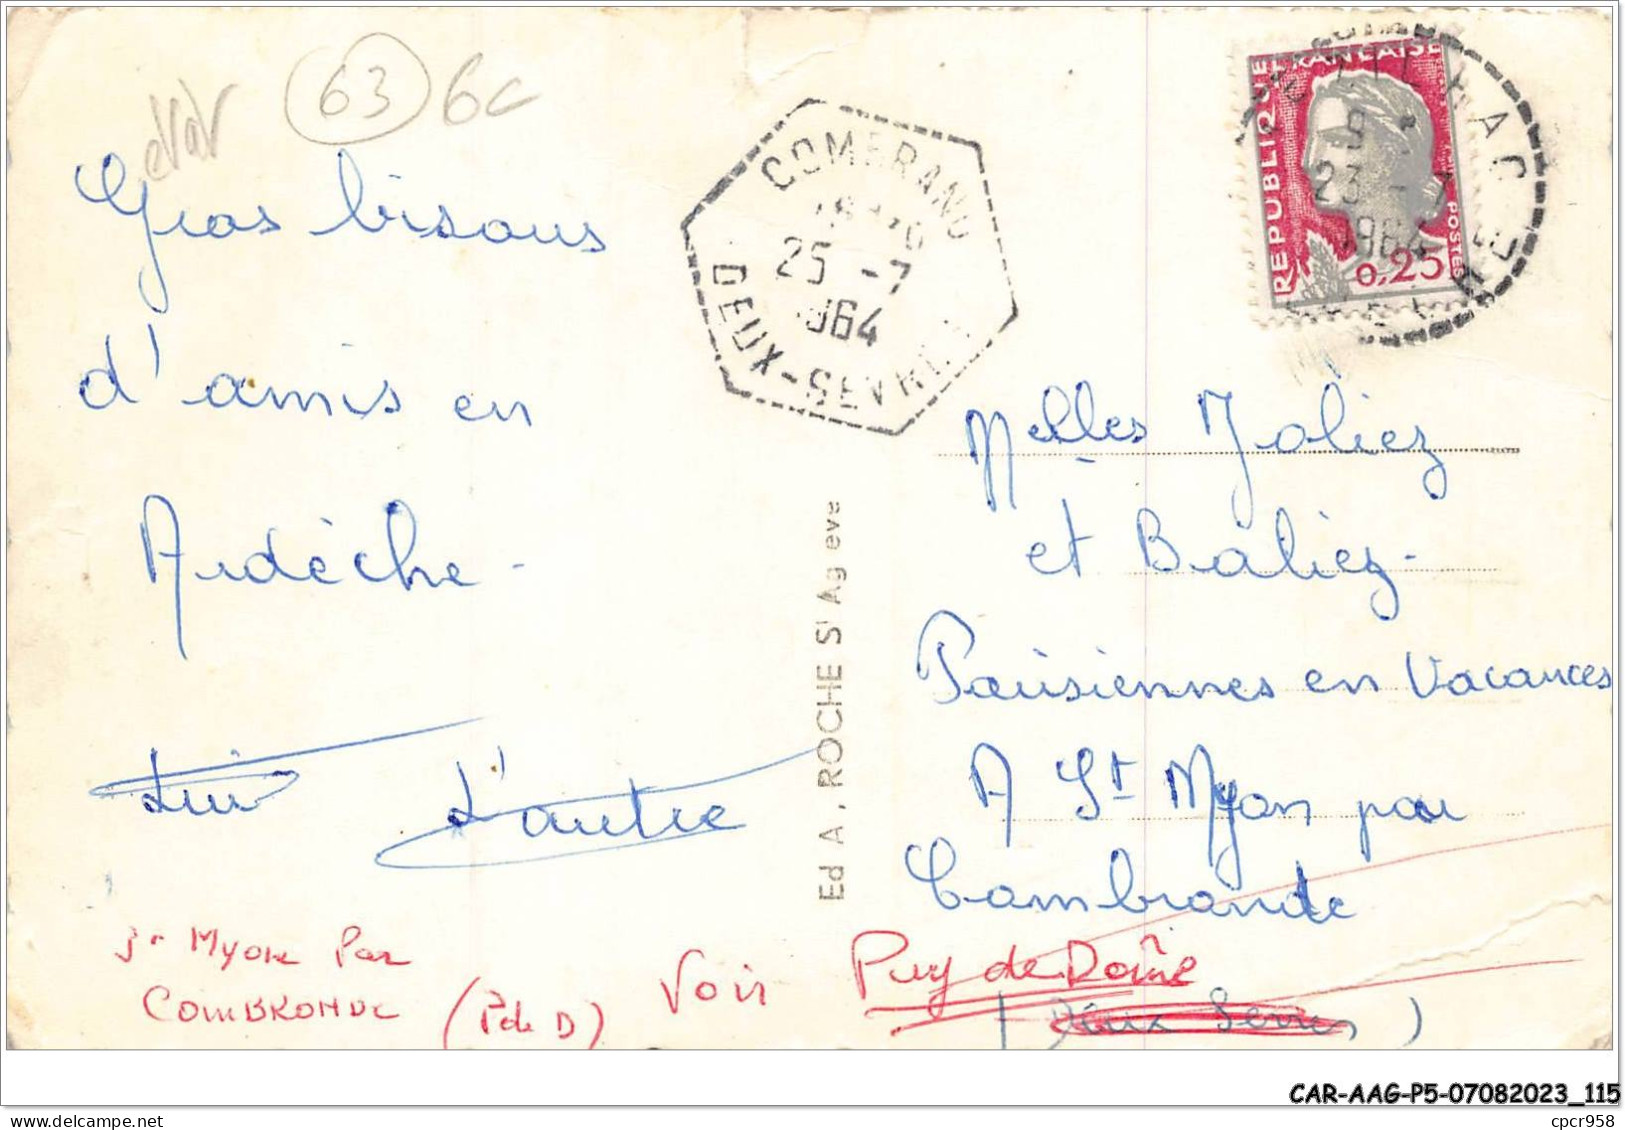 63 6c
Gros bisous
d'amis en
Ardèche -
L'autre
Ed A, ROCHE St Ag eve
COMBRAND
25 -7
1964
DEUX-SEVRES
REPUBLIQUE FRANCAISE
POSTES
0,25
23 - 7
1964
Melles Joliez
et Baliez -
Parisiennes en Vacances
A St Myon par
Combronde
Puy de Dôme
(Deux Sevres)
Voir
St Myon Par
COMBRONDE
(P de D)
CAR-AAG-P5-07082023_115
www.delcampe.net
cpcr958